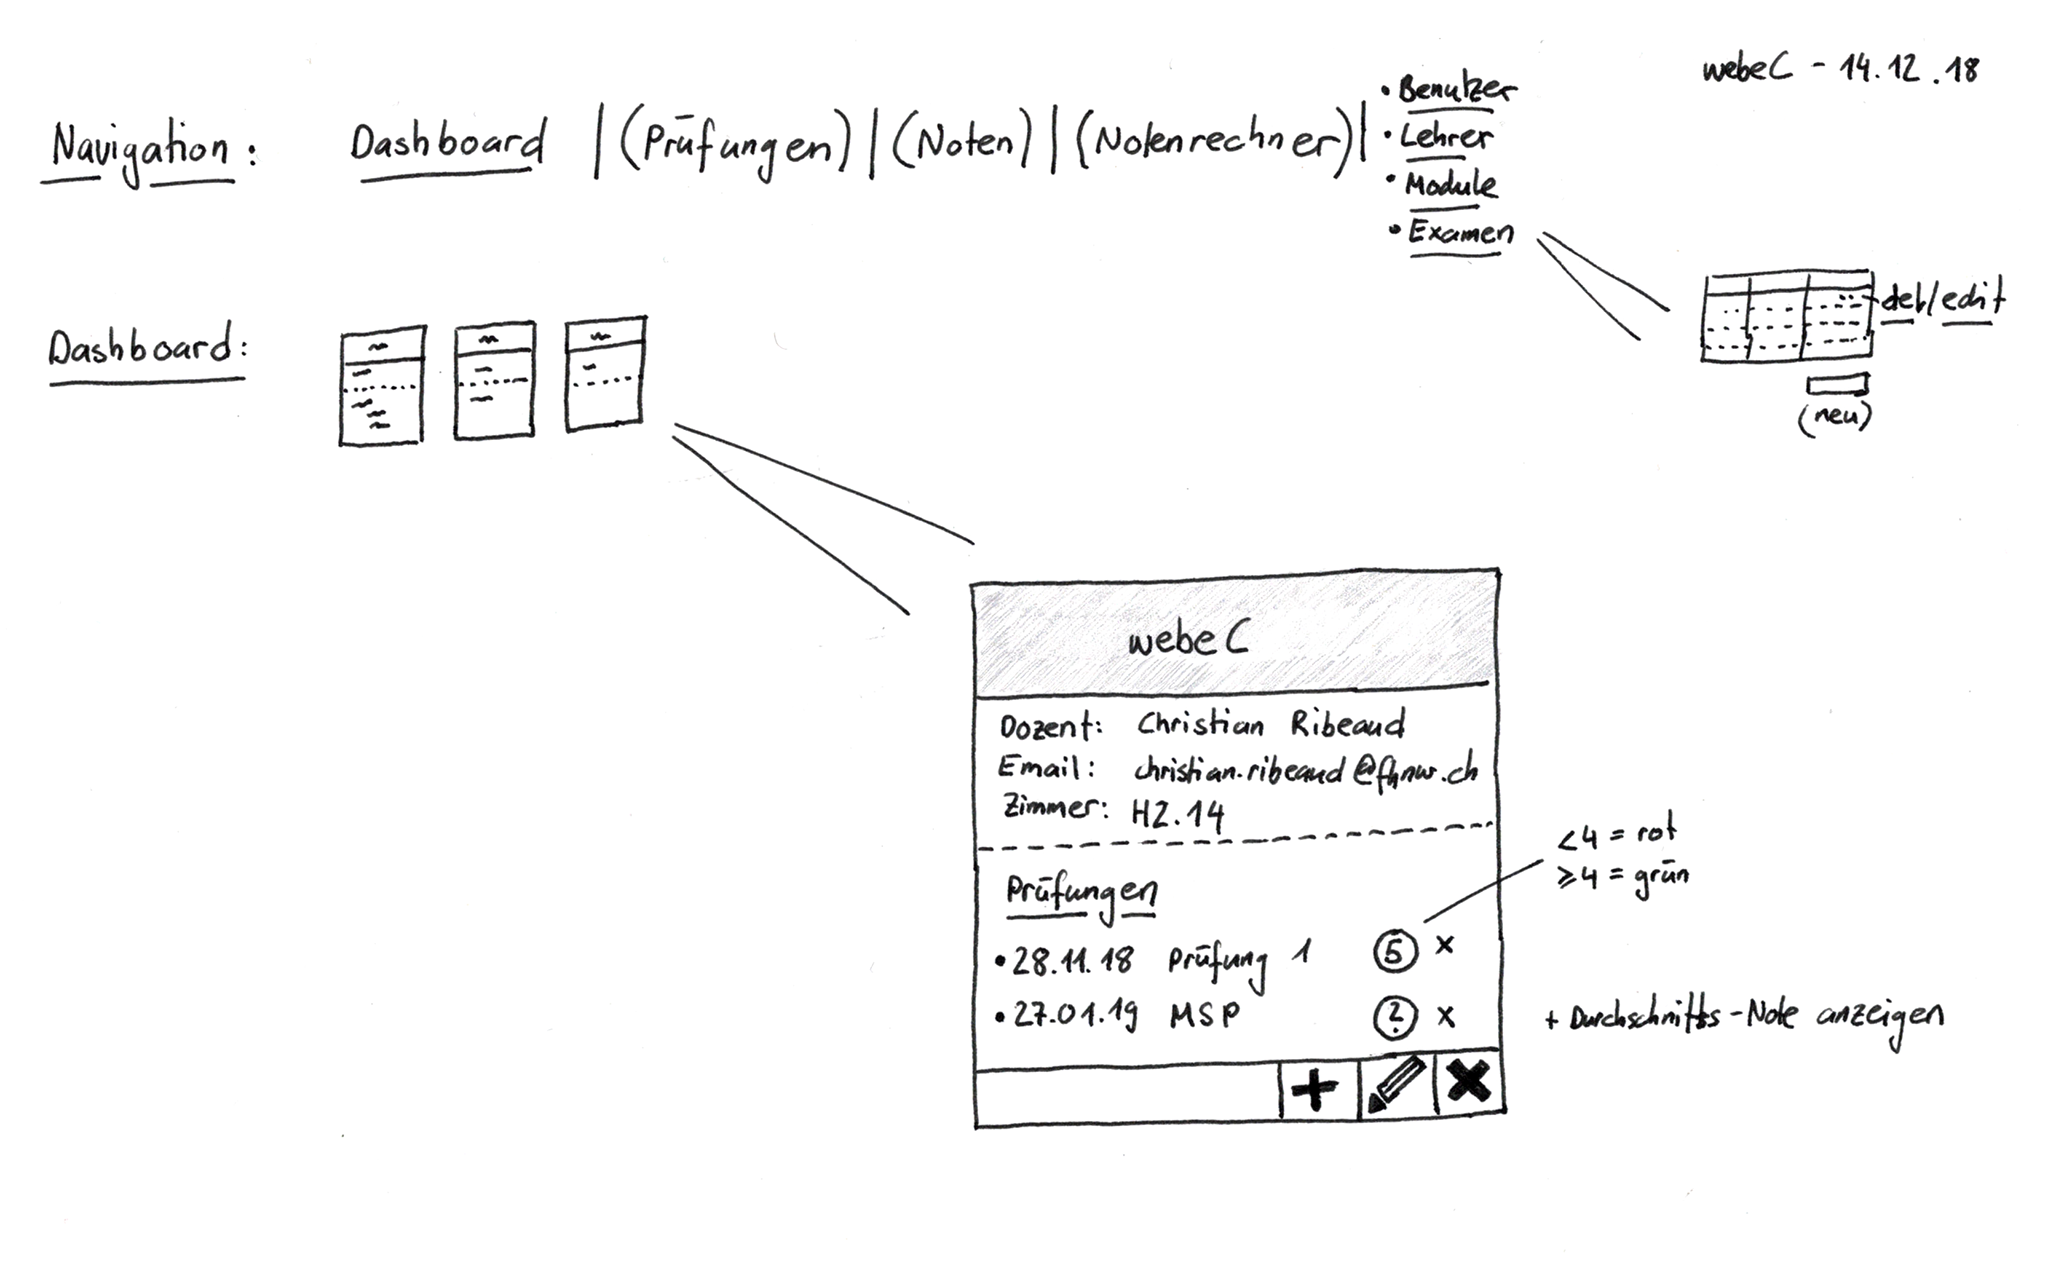 webeC - 14.12.18
Navigation: Dashboard | (Prüfungen) | (Noten) | (Notenrechner) |
• Benutzer
• Lehrer
• Module
• Examen
del/edit
(neu)
Dashboard:
webeC
Dozent: Christian Ribeaud
Email: christian.ribeaud@fhnw.ch
Zimmer: H2.14
<4 = rot
≥4 = grün
Prüfungen
• 28.11.18 Prüfung 1 5 x
• 27.01.19 MSP ? x
+ Durchschnitts-Note anzeigen